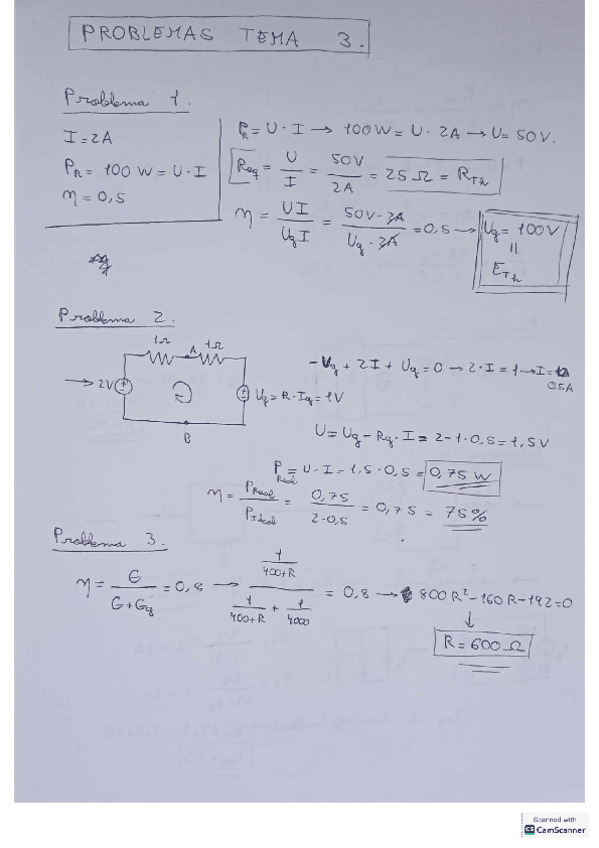 PROBLEMAS TEMA 3.
Problema 1.
I = 2A
P_R = 100 W = U · I
η = 0,5
P_R = U · I → 100 W = U · 2A → U = 50 V.
Req = U / I = 50V / 2A = 25 Ω = R_Th
η = UI / UgI = 50V · 2A / Ug · 2A = 0,5 → Ug = 100V
=
E_Th
Problema 2.
1Ω A 1Ω
→ 2V
Ug = R · Ig = 1V
B
-Ug + 2I + Ug = 0 → 2 · I = 1 → I =
0,5A
U = Ug - Rg · I = 2 - 1 · 0,5 = 1,5 V
P_Real = U · I = 1,5 · 0,5 = 0,75 W
η = P_Real / P_Ideal = 0,75 / 2·0,5 = 0,75 = 75%
Problema 3.
η = G / G+Gg = 0,8 → 1/400+R / 1/400+R + 1/4000 = 0,8 → 800R² - 160R - 192 = 0
↓
R = 600 Ω
Scanned with
CS CamScanner